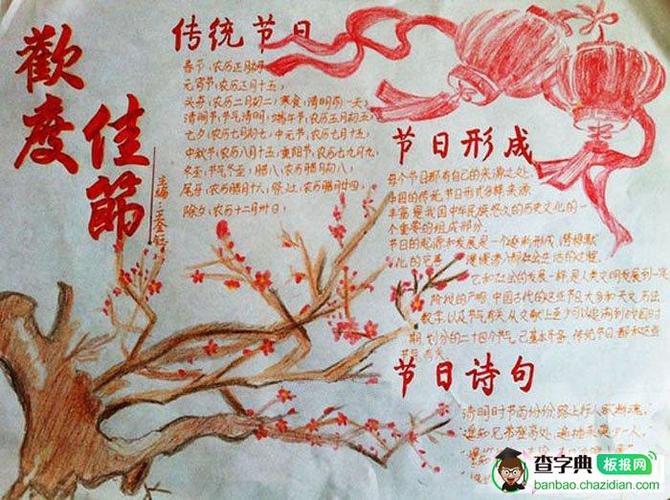 歡度
佳節
传统节日
春节,农历正月初一
元宵节,农历正月十五,
头牙,农历二月初二,寒食,清明前一天,
清明节,节气清明,端午节,农历五月初五
七夕,农历七月初七,中元节,农历七月十五,
中秋节,农历八月十五,重阳节,农历七九月九
冬至,节气冬至,腊八,农历腊月初八,
尾牙,农历腊月十六,祭灶,农历腊月廿四,
除夕,农历十二月卅日,
主编:王
节日形成
每个节日都有自己的来源之处,
中国的传统节日形式多样,来源
丰富,是我国中华民族悠久的历史文化的一
个重要的组成部分.
节日的起源和发展是一个逐渐形成,潜移默
化的完善,慢慢渗入到社会生活的过程.
它和社会的发展一样,是人类文明发展到一定
阶段的产物,中国古代的这些节日大多和天文,历法
数字,以及节气有关,从文献上至少可以追溯到战国时
期,划分的二十四个节气,已基本齐备,传统节日都和这些
节气有关
节日诗句
"清明时节雨纷纷,路上行人欲断魂,"
"遥知兄弟登高处,遍插茱萸少一人,
查字典 板报网
banbao.chazidian.com